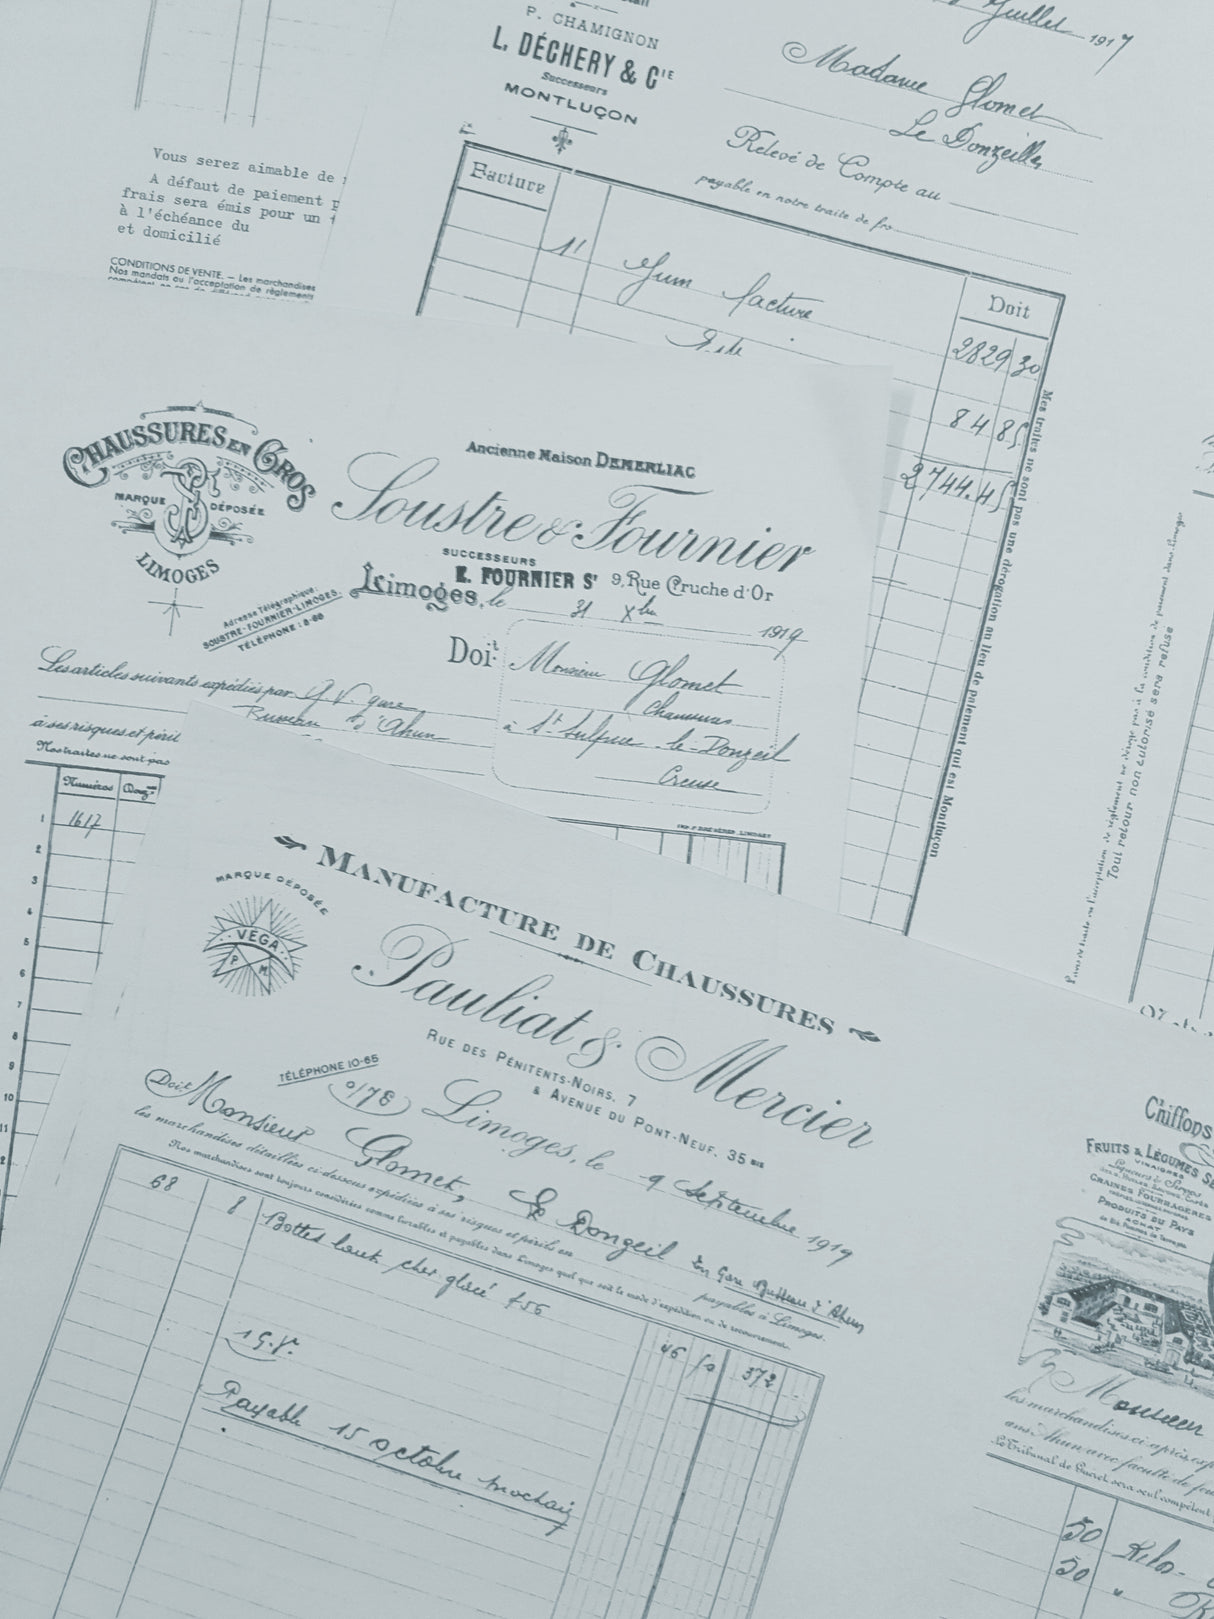 P. CHAMIGNON
L. DÉCHERY & Cie
Successeurs
MONTLUÇON
Juillet 1917
Madame Glomet
Le Donzeille
Relevé de Compte au
payable en notre traite de frs
Facture
Doit
11
facture
2829 30
84 85
2744.45
Mes traites ne sont pas une dérogation au lieu de paiement qui est Montluçon
Vous serez aimable de
A défaut de paiement
frais sera émis pour un
à l'échéance du
et domicilié
CONDITIONS DE VENTE. — Les marchandises
Nos mandats ou l'acceptation de règlements
Tout retour non autorisé sera refusé
CHAUSSURES EN GROS
MARQUE DÉPOSÉE
LIMOGES
Ancienne Maison DEMERLIAC
Soustre & Fournier
SUCCESSEURS
E. FOURNIER Sr 9, Rue Cruche d'Or
Adresse Télégraphique:
SOUSTRE-FOURNIER-LIMOGES.
TÉLÉPHONE: 8-66
Limoges, le 31 Xbre 1919
Doit Monsieur Glomet
Chaussures
à St Sulpice-le-Donzeil
Creuse
Les articles suivants expédiés par G.V. gare
Busseau d'Ahun
à ses risques et péril
Nos traites ne sont pas
Numéros
1617
1
2
3
4
5
6
7
8
9
10
11
2
MANUFACTURE DE CHAUSSURES
MARQUE DÉPOSÉE
VÉGA
P M
Pauliat & Mercier
RUE DES PÉNITENTS-NOIRS, 7
& AVENUE DU PONT-NEUF, 35 BIS
TÉLÉPHONE 10-65
0/78
Limoges, le 9 Septembre 1919
Doit Monsieur Glomet, Le Donzeil en Gare Busseau d'Ahun
les marchandises détaillées ci-dessous expédiées à ses risques et périls en payables à Limoges.
Nos marchandises sont toujours considérées comme livrables et payables dans Limoges quel que soit le mode d'expédition ou de recouvrement.
68 8 Bottes glacé
46 50 372
1 G.V.
Payable 15 octobre prochain
Chiffons
FRUITS & LÉGUMES
VINAIGRES
GRAINES FOURRAGÈRES
PRODUITS DU PAYS
ACHAT
Monsieur
les marchandises ci-après
avec faculté de
Le Tribunal de Guéret sera seul compétent
50 Kilos
50 "